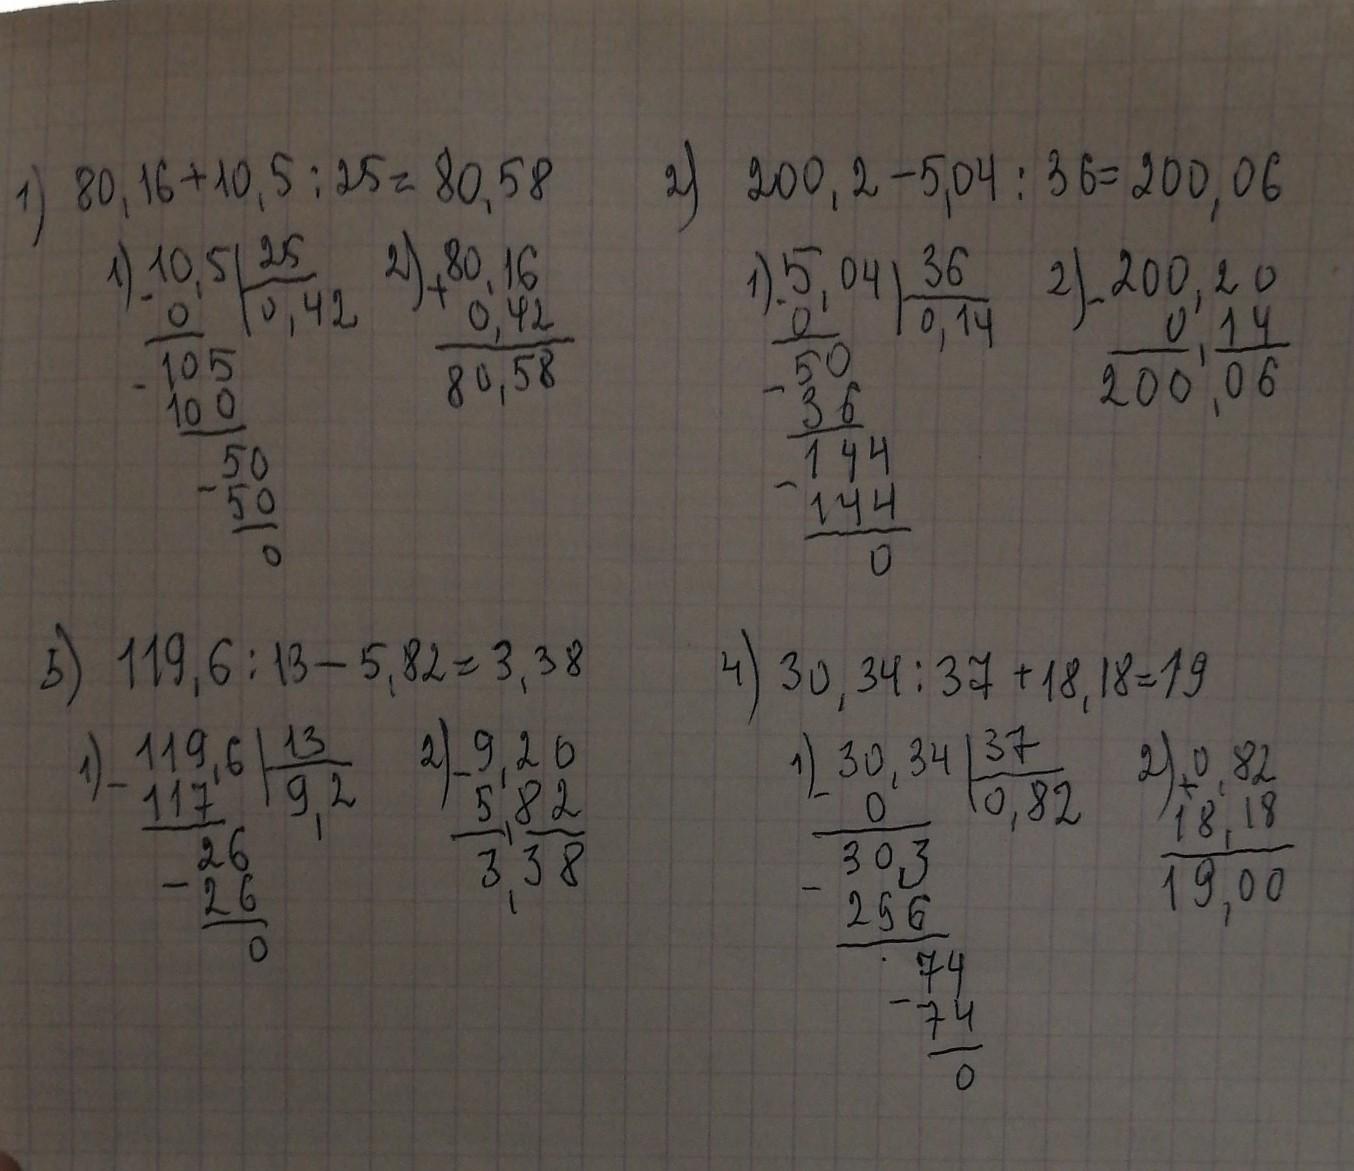 1) 80,16+10,5:25=80,58
1) 10,5 25
- 0 0,42
105
- 100
50
- 50
0
2) 80,16
+ 0,42
80,58
2) 200,2-5,04:36=200,06
1) 5,04 36
- 0 0,14
50
- 36
144
- 144
0
2) - 200,20
0,14
200,06
3) 119,6:13-5,82=3,38
1) - 119,6 13
117 9,2
26
- 26
0
2) - 9,20
5,82
3,38
4) 30,34:37+18,18=19
1) - 30,34 37
0 0,82
303
- 296
74
- 74
0
2) + 0,82
18,18
19,00